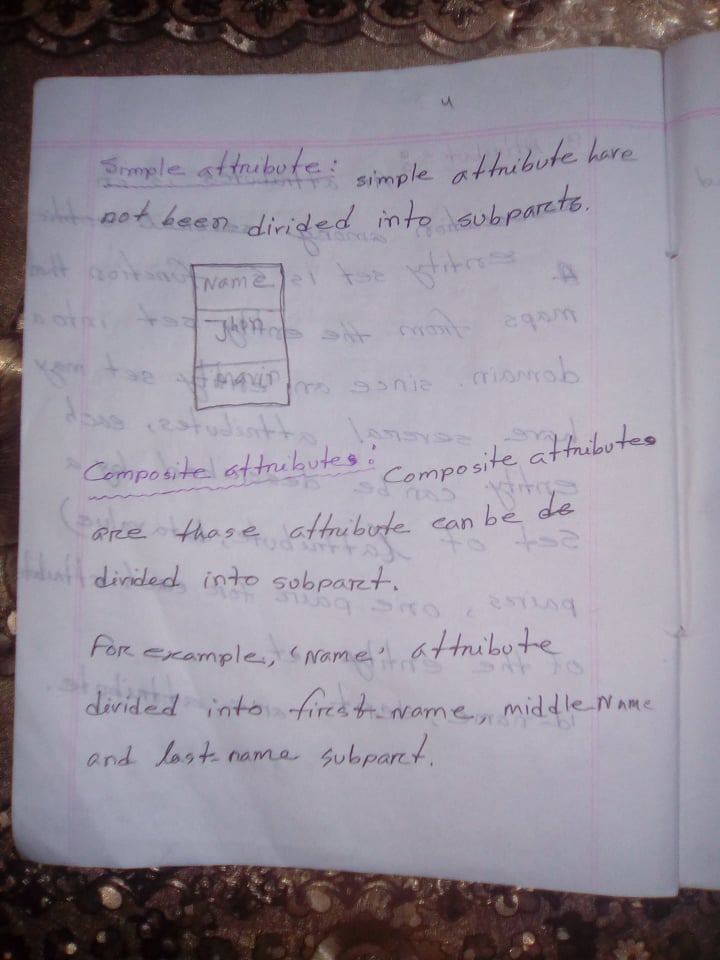 4
Simple attribute: simple attribute have
not been divided into subparts.
Name
Jhon
Composite attributes: Composite attributes
are those attribute can be de
divided into subpart.
For example, 'Name' attribute
divided into first-name, middle-Name
and last-name subpart.